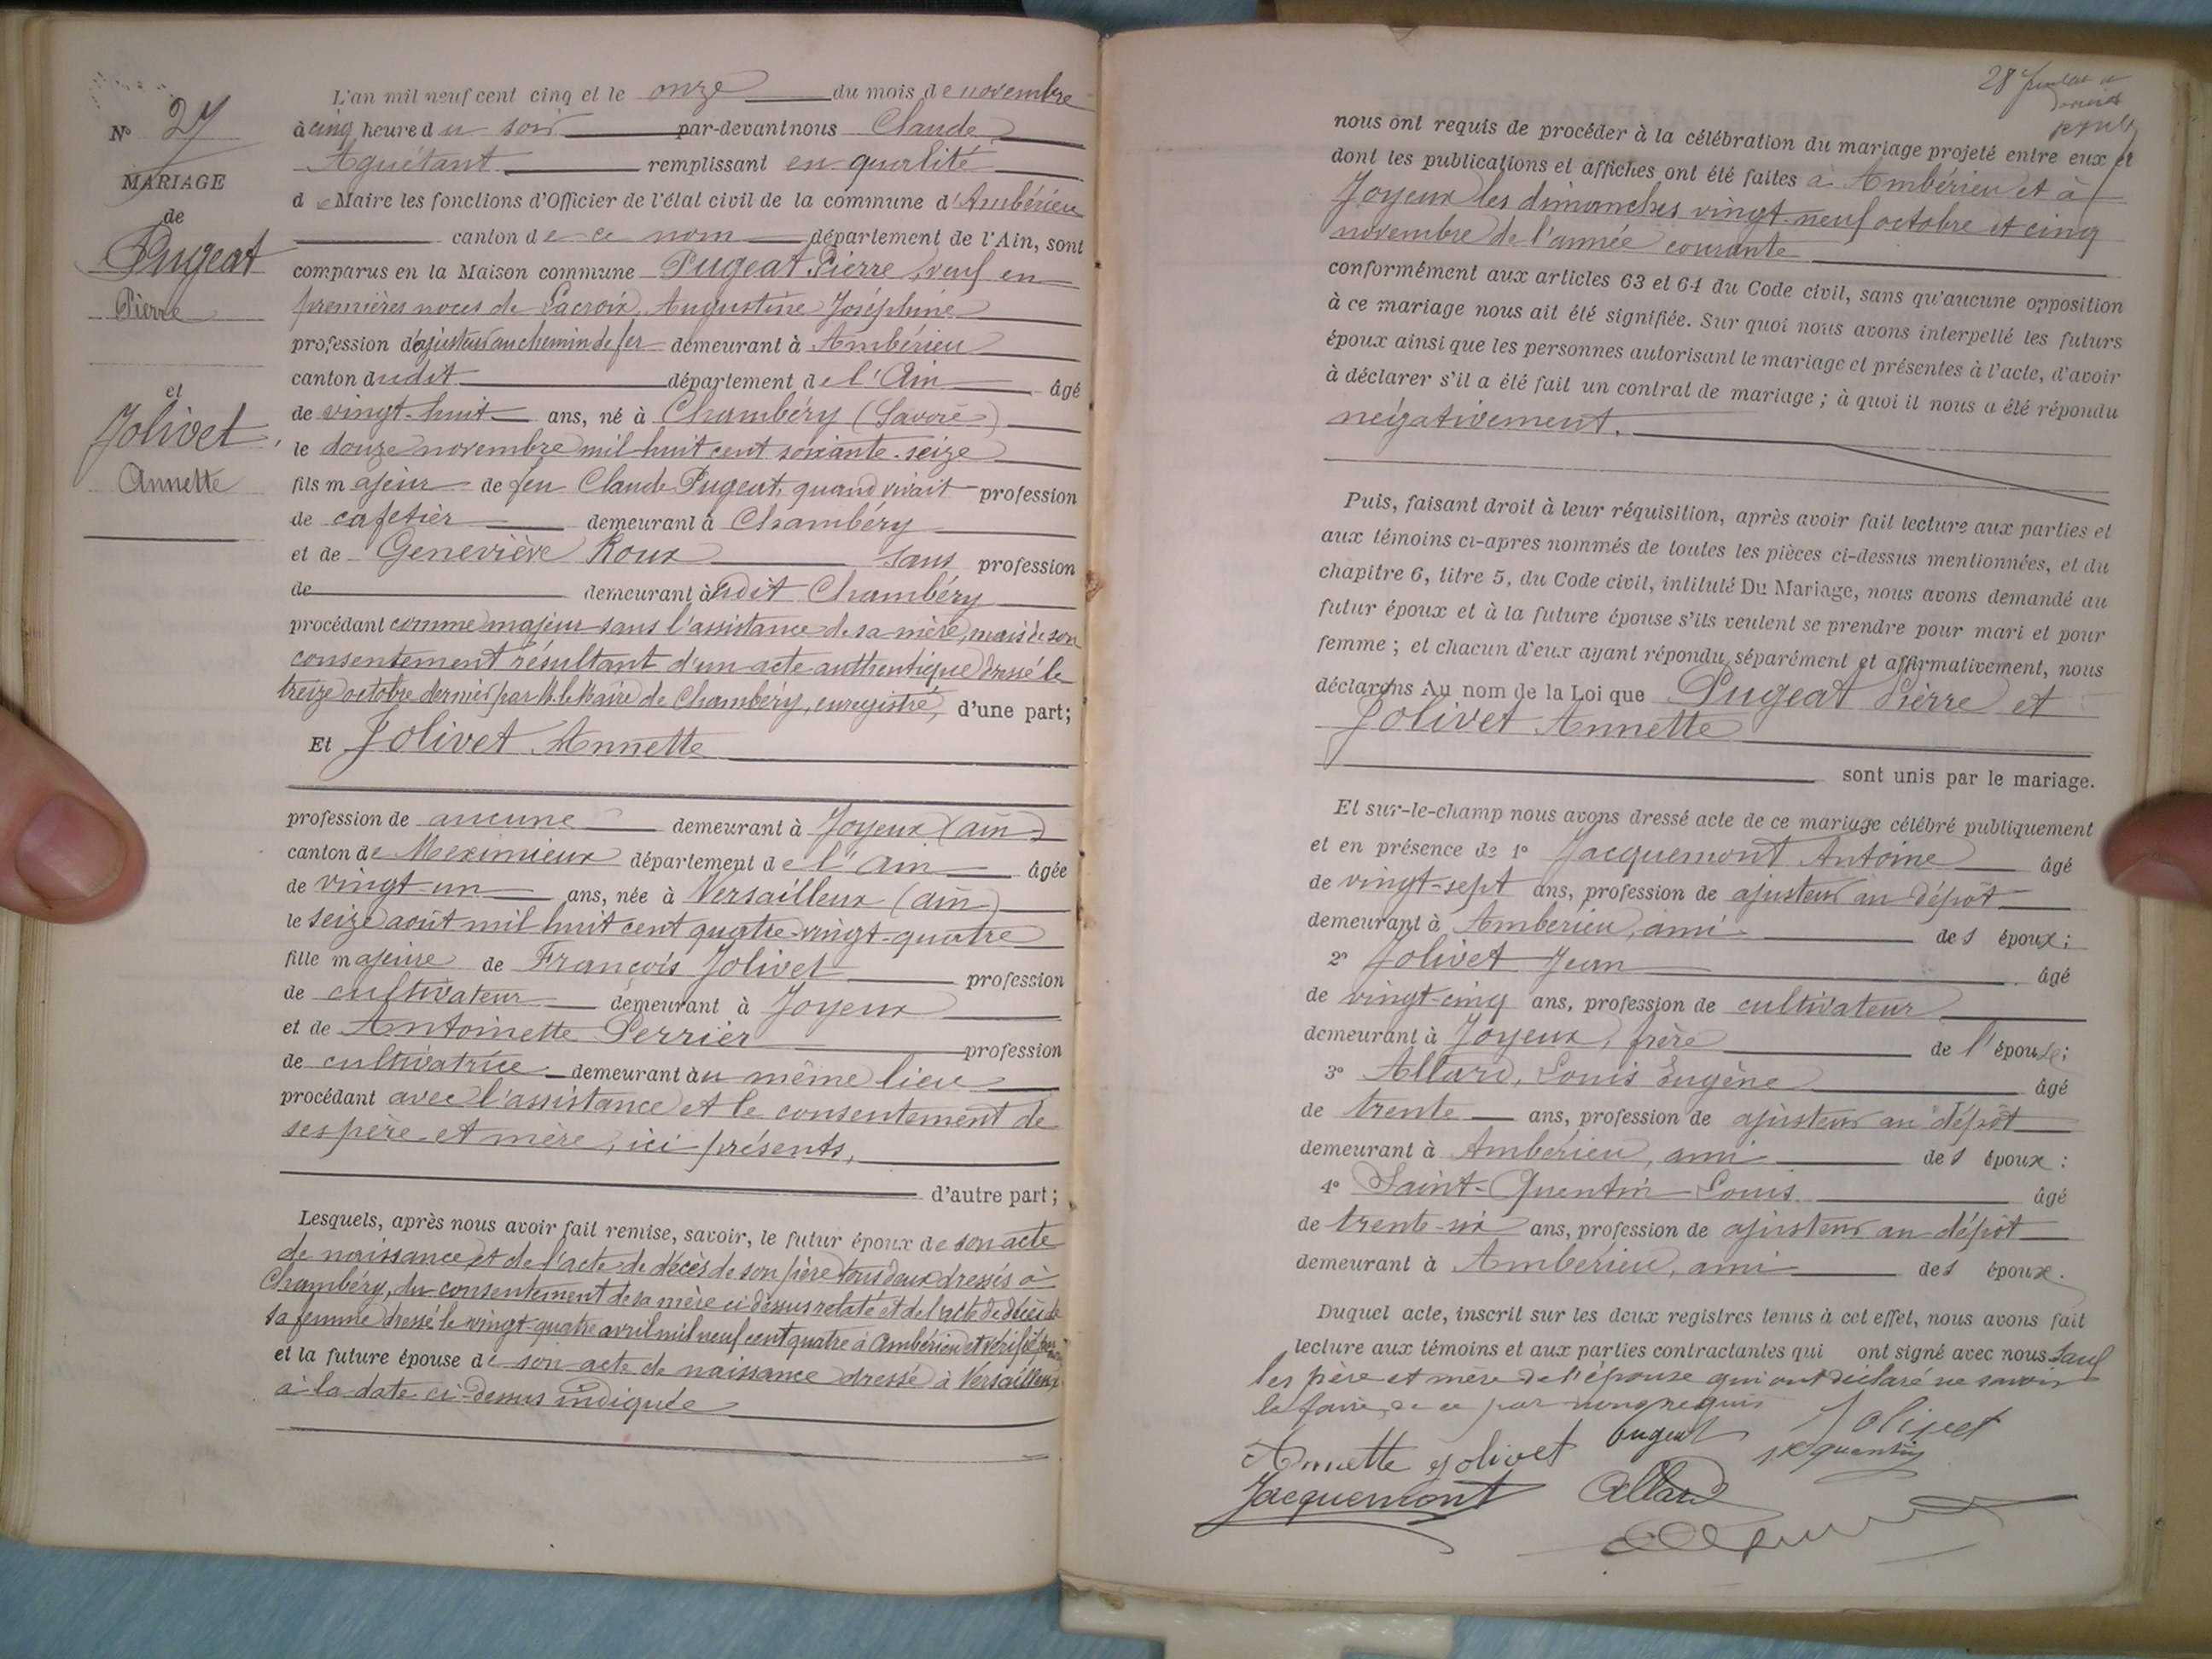 N° 27
MARIAGE
de
Pugeat
Pierre
et
Jolivet
Annette
L'an mil neuf cent cinq et le onze du mois de novembre
à cinq heure du soir par-devant nous Claude
Aguétant remplissant en qualité
de Maire les fonctions d'Officier de l'état civil de la commune d'Ambérieu
canton de ce nom département de l'Ain, sont
comparus en la Maison commune Pugeat Pierre, veuf en
premières noces de Lacroix, Augustine Joséphine
profession d'ajusteur au chemin de fer demeurant à Ambérieu
canton dudit département de l'Ain âgé
de vingt-huit ans, né à Chambéry (Savoie)
le douze novembre mil huit cent soixante-seize
fils majeur de feu Claude Pugeat, quand vivait profession
de cafetier demeurant à Chambéry
et de Geneviève Roux sans profession
de demeurant audit Chambéry
procédant comme majeur sans l'assistance de sa mère, mais de son
consentement résultant d'un acte authentique dressé le
treize octobre dernier par M. le Maire de Chambéry, enregistré, d'une part;
Et Jolivet Annette
profession de aucune demeurant à Joyeux (ain)
canton de Meximieux département de l'ain âgée
de vingt-un ans, née à Versailleux (ain)
le seize août mil huit cent quatre-vingt-quatre
fille majeure de François Jolivet profession
de cultivateur demeurant à Joyeux
et de Antoinette Perrier profession
de cultivatrice demeurant au même lieu
procédant avec l'assistance et le consentement de
ses père et mère, ici présents,
d'autre part;
Lesquels, après nous avoir fait remise, savoir, le futur époux de son acte
de naissance et de l'acte de décès de son père tous deux dressés à
Chambéry, du consentement de sa mère ci-dessus relaté et de l'acte de décès de
sa femme dressé le vingt-quatre avril mil neuf cent quatre à Ambérieu et vérifié par nous
et la future épouse de son acte de naissance dressé à Versailleux
à la date ci-dessus indiquée
28
nous ont requis de procéder à la célébration du mariage projeté entre eux et
dont les publications et affiches ont été faites à Ambérieu et à
Joyeux les dimanches vingt-neuf octobre et cinq
novembre de l'année courante
conformément aux articles 63 et 64 du Code civil, sans qu'aucune opposition
à ce mariage nous ait été signifiée. Sur quoi nous avons interpellé les futurs
époux ainsi que les personnes autorisant le mariage et présentes à l'acte, d'avoir
à déclarer s'il a été fait un contrat de mariage; à quoi il nous a été répondu
négativement.
Puis, faisant droit à leur réquisition, après avoir fait lecture aux parties et
aux témoins ci-après nommés de toutes les pièces ci-dessus mentionnées, et du
chapitre 6, titre 5, du Code civil, intitulé Du Mariage, nous avons demandé au
futur époux et à la future épouse s'ils veulent se prendre pour mari et pour
femme; et chacun d'eux ayant répondu séparément et affirmativement, nous
déclarons Au nom de la Loi que Pugeat Pierre et
Jolivet Annette
sont unis par le mariage.
Et sur-le-champ nous avons dressé acte de ce mariage célébré publiquement
et en présence de 1° Jacquemont Antoine âgé
de vingt-sept ans, profession de ajusteur au dépôt
demeurant à Ambérieu, ami des époux;
2° Jolivet Jean âgé
de vingt-cinq ans, profession de cultivateur
demeurant à Joyeux, frère de l'épouse;
3° Allard, Louis Eugène âgé
de trente ans, profession de ajusteur au dépôt
demeurant à Ambérieu, ami des époux:
4° Saint-Quentin Louis âgé
de trente-six ans, profession de ajusteur au dépôt
demeurant à Ambérieu, ami des époux.
Duquel acte, inscrit sur les deux registres tenus à cet effet, nous avons fait
lecture aux témoins et aux parties contractantes qui ont signé avec nous sauf
les père et mère de l'épouse qui ont déclaré ne savoir
le faire, de ce par nous requis
Annette Jolivet Pugeat Jolivet
St quentin
Jacquemont Allard